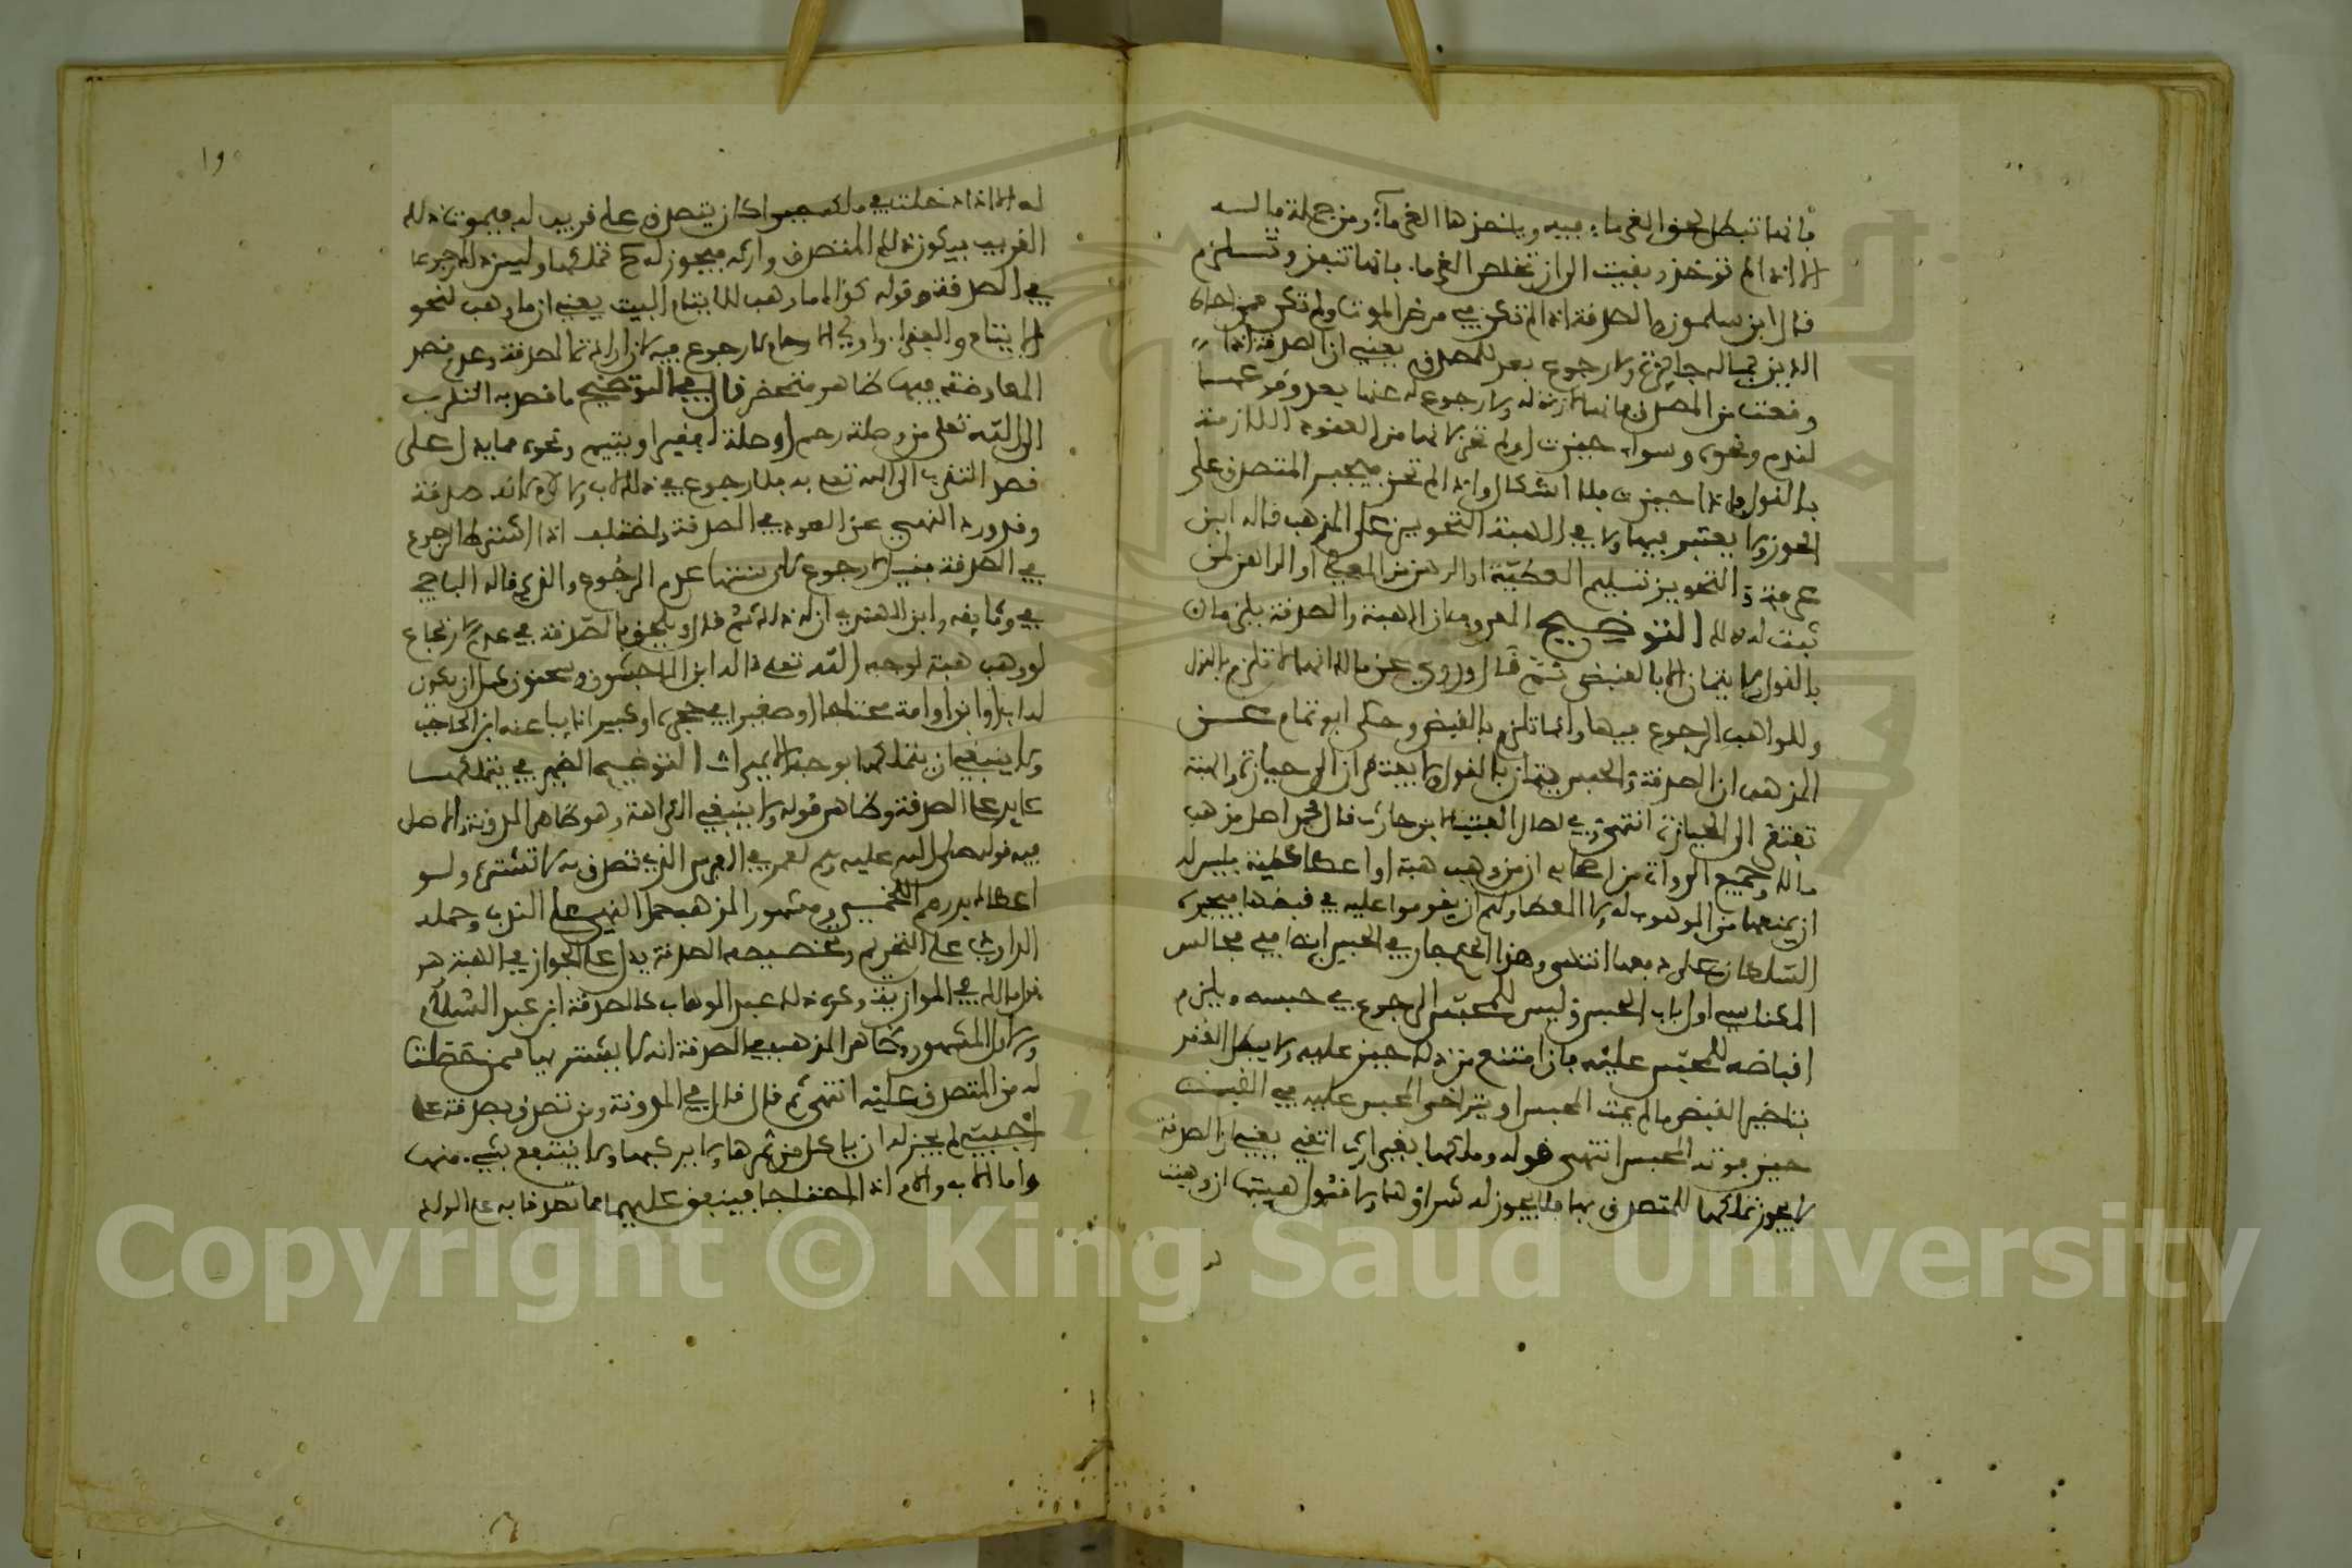 فانها تبطل لحق الغرماء فيه وياخذها الغرماء ومن جملة ماله
الا اذا لم توخذ وبقيت الى ان تخلص الغرماء فانها تنفذ وتلزم
قال ابن سلمون والصدقة اذا لم تكن في مرض الموت ولم تكن ممن احاط
الدين بماله جائزة ولا رجوع بعد للمتصدق يعني ان الصدقة اذا
وقعت من المتصدق فانها لازمة له ولا رجوع له عنها بعد وقوعها
لندم ونحوه وسواء حيزت او لم تحز لانها من العقود اللازمة
بالقول فان حيزت فلا اشكال وان لم تحز فيجبر المتصدق على
الحوز ولا يعتبر فيها ولا في الهبة التحويز على المذهب قاله ابن
عرفة التحويز تسليم العطية او الرهن من المعطي او الراهن لمن
ثبت له ذلك التوضيح المعروف ان الهبة والصدقة يلزمان
بالقول ولا يتمان الا بالقبض ثم قال وروي عن مالك انها لا تلزم بالقول
وللواهب الرجوع فيها وانما تلزم بالقبض وحكى ابو تمام عن
المذهب ان الصدقة والحبس يتمان بالقول ولا يفتقران الى حيازة والهبة
تفتقر الى الحيازة انتهى وفي لابن حارث قال محمد اصل مذهب
مالك وجميع الرواة من اصحابه ان من وهب هبة او اعطى عطية فليس له
ان يمنعها من الموهوب له ولا المعطى ولهم ان يقوموا عليه في قبضها فيجبره
السلطان على دفعها انتهى وهذا الحكم جار في الحبس ايضا ففي مجالس
المكناسي اول باب الحبس وليس للمحبس الرجوع في حبسه ويلزم
اقباضه للمحبس عليه فان امتنع من ذلك جبر عليه ولا يبطل العقد
بتاخير القبض ما لم يمت المحبس او يتراخى المحبس عليه في القبض
حين موت المحبس انتهى قوله وملكها بغير ارث اتقي يعني ان الصدقة
لا يجوز تملكها للمتصدق بها فلا يجوز له شراؤها ولا قبول هبتها ان وهبت
له الا اذا دخلت في ملكه جبرا كان يتصدق على قريب له فيموت ذلك
القريب فيكون ذلك المتصدق وارثه فيجوز له تملكها وليس ذلك رجوعا
في الصدقة وقوله كذاك ما وهب للايتام البيت يعني ان ما وهب لنحو
الايتام والفقراء واولي الارحام لا رجوع فيه لان ارادة الصدقة وعدم قصد
المعارضة فيها ظاهر منحصر قال في التوضيح ما قصد به التقرب
الى الله تعلى من وصلة رحم او صلة لفقير او يتيم ونحوه مما يدل على
قصد التقرب الى الله تعلى به فلا رجوع في ذلك لاب ولا لام لانه صدقة
وقد ورد النهي عن العود في الصدقة واختلف اذا اشترط الرجوع
في الصدقة الرجوع عدم الرجوع والذي قاله الباجي
في وثايقه وابن الهندي ان له ذلك ثم قال ويلحق بالصدقة في عدم الارتجاع
لو وهب هبة لوجه الله تعلى قاله ابن الماجشون وسحنون
لدابة او امة محتاجا او صغيرا في حجره او كبيرا نايبا عنه ابن الحاجب
ولا ينبغي ان يتملكها بوجه الا بميراث التوضيح الضمير في يتملكها
عايد على الصدقة وظاهر قوله ولا ينبغي الكراهة وهو ظاهر المدونة والاصل
فيه قوله صلى الله عليه وسلم لعمر في الفرس الذي تصدق به لا تشتره ولو
اعطاكه بدرهم اللخمي ومشهور المذهب حمل النهي على الندب وحمله
الداودي على التحريم وتخصيصه الصدقة يدل على الجواز في الهبة هو
قول مالك في الموازية وكره ذلك عبد الوهاب كالصدقة ابن عبد السلام
المشهور وظاهر المذهب في الصدقة انه لا يشتريها ممن حصلت
له من المتصدق عليه انتهى ثم قال قال في المدونة ومن تصدق بصدقة على
اجنبي لم يجز له ان ياكل من ثمرها ولا يركبها ولا ينتفع بشيء منها
واما الاب والام اذا احتاجا فينفق عليهما مما تصدقا به على الولد